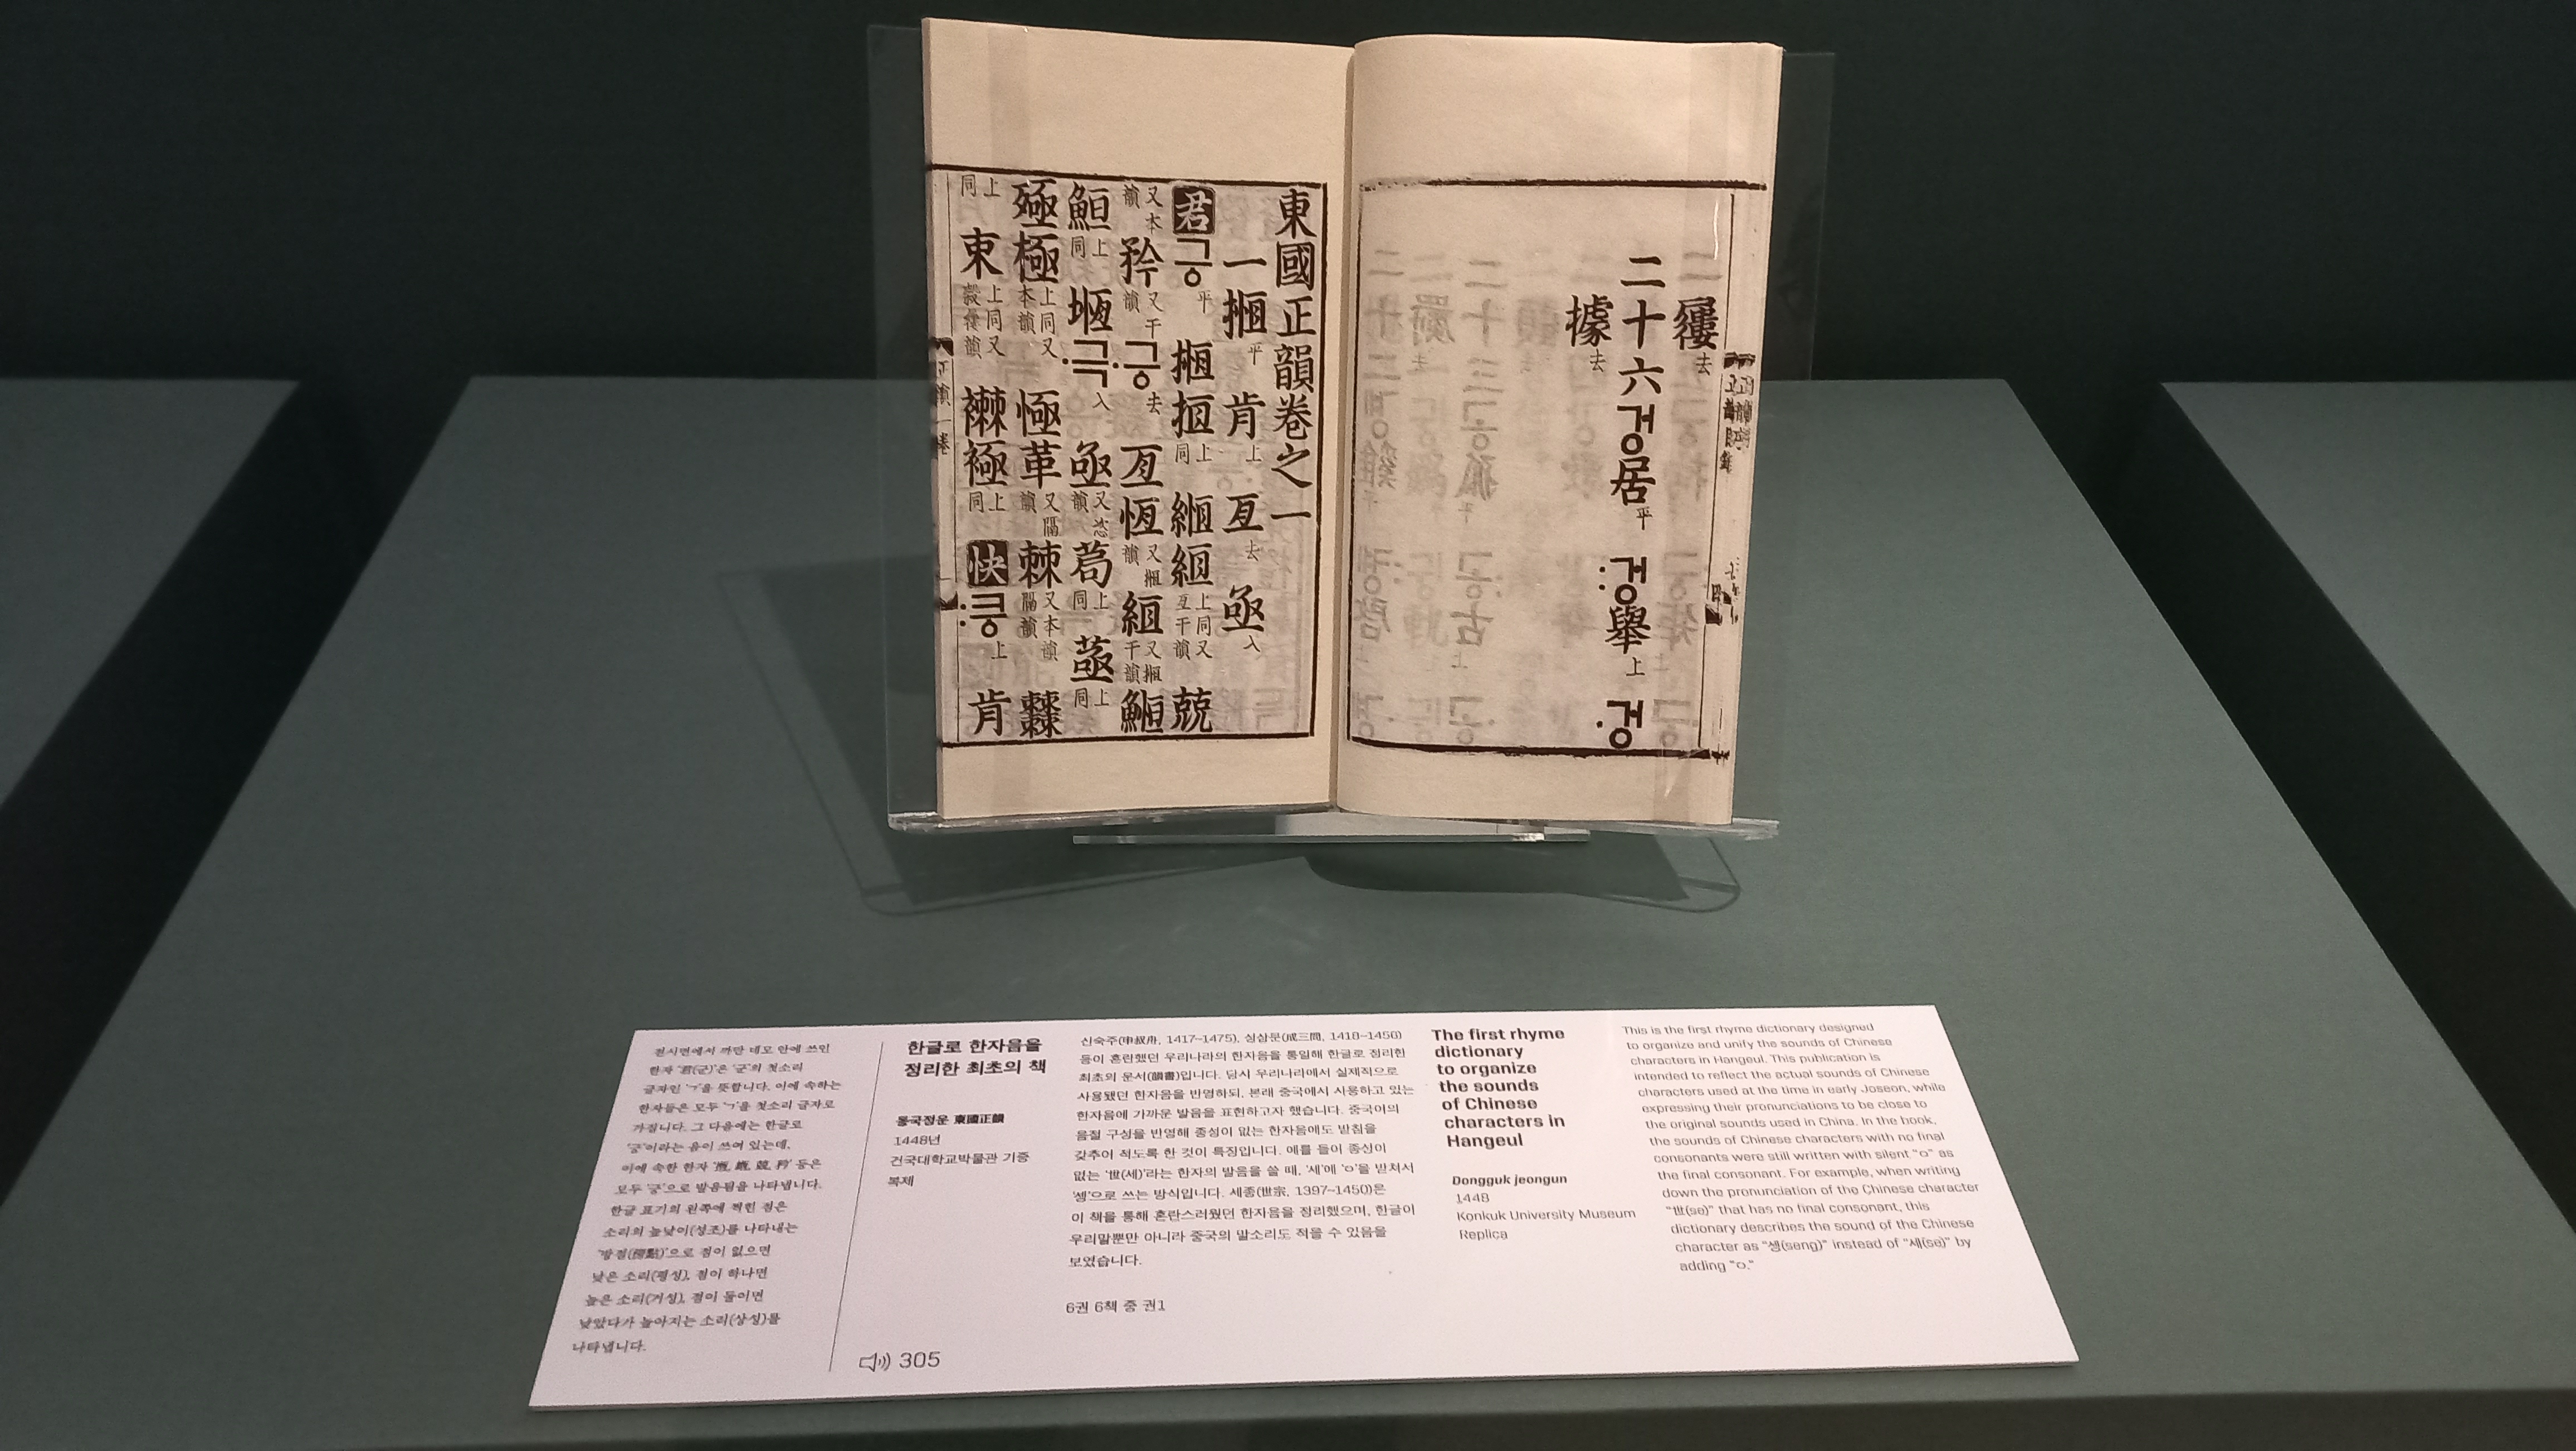 去
二十六겅居平 :겅擧上 ·겅
據去
東國正韻卷之一
一揯平 肯上 亙去 亟入
君긍平 揯搄上同 縆絚上同又亙干韻 兢
又本韻 矜又干韻 ·긍去 亙恆又揯韻 絚又揯干韻 䱍
䱇上同 堩 ·극入 亟又韻 上同 上同
殛極上同又本韻 恆革又隔韻 棘又本隔韻
上同 朿上同又韻 襋極上同 快:킁上 肯
전시면에서 까만 네모 안에 쓰인
한자 ‘君(군)’은 ‘군’의 첫소리
글자인 ‘ㄱ’을 뜻합니다. 이에 속하는
한자들은 모두 ‘ㄱ’을 첫소리 글자로
가집니다. 그 다음에는 한글로
‘긍’이라는 음이 쓰여 있는데,
이에 속한 한자 ‘揯, 縆, 兢, 矜’ 등은
모두 ‘긍’으로 발음됨을 나타냅니다.
한글 표기의 왼쪽에 찍힌 점은
소리의 높낮이(성조)를 나타내는
‘방점(傍點)’으로 점이 없으면
낮은 소리(평성), 점이 하나면
높은 소리(거성), 점이 둘이면
낮았다가 높아지는 소리(상성)를
나타냅니다.
한글로 한자음을
정리한 최초의 책
동국정운 東國正韻
1448년
건국대학교박물관 기증
복제
305
신숙주(申叔舟, 1417~1475), 성삼문(成三問, 1418~1456)
등이 혼란했던 우리나라의 한자음을 통일해 한글로 정리한
최초의 운서(韻書)입니다. 당시 우리나라에서 실제적으로
사용됐던 한자음을 반영하되, 본래 중국에서 사용하고 있는
한자음에 가까운 발음을 표현하고자 했습니다. 중국어의
음절 구성을 반영해 종성이 없는 한자음에도 받침을
갖추어 적도록 한 것이 특징입니다. 예를 들어 종성이
없는 ‘世(세)’라는 한자의 발음을 쓸 때, ‘세’에 ‘ㅇ’을 받쳐서
‘솅’으로 쓰는 방식입니다. 세종(世宗, 1397~1450)은
이 책을 통해 혼란스러웠던 한자음을 정리했으며, 한글이
우리말뿐만 아니라 중국의 말소리도 적을 수 있음을
보였습니다.
6권 6책 중 권1
The first rhyme
dictionary
to organize
the sounds
of Chinese
characters in
Hangeul
Dongguk jeongun
1448
Konkuk University Museum
Replica
This is the first rhyme dictionary designed
to organize and unify the sounds of Chinese
characters in Hangeul. This publication is
intended to reflect the actual sounds of Chinese
characters used at the time in early Joseon, while
expressing their pronunciations to be close to
the original sounds used in China. In the book,
the sounds of Chinese characters with no final
consonants were still written with silent “ㅇ” as
the final consonant. For example, when writing
down the pronunciation of the Chinese character
“世(se)” that has no final consonant, this
dictionary describes the sound of the Chinese
character as “솅(seng)” instead of “세(se)” by
adding “ㅇ.”